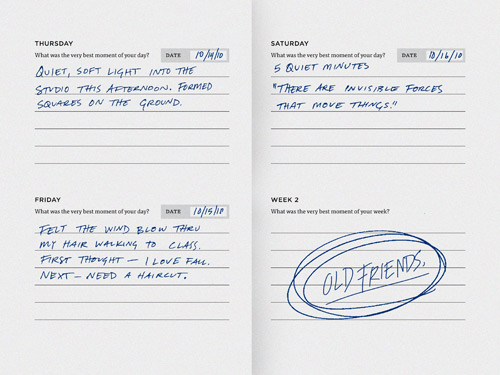 THURSDAY
What was the very best moment of your day?
DATE 10/14/10
QUIET, SOFT LIGHT INTO THE
STUDIO THIS AFTERNOON. FORMED
SQUARES ON THE GROUND.
FRIDAY
What was the very best moment of your day?
DATE 10/15/10
FELT THE WIND BLOW THRU
MY HAIR WALKING TO CLASS.
FIRST THOUGHT – I LOVE FALL.
NEXT – NEED A HAIRCUT.
SATURDAY
What was the very best moment of your day?
DATE 10/16/10
5 QUIET MINUTES
"THERE ARE INVISIBLE FORCES
THAT MOVE THINGS."
WEEK 2
What was the very best moment of your week?
OLD FRIENDS.